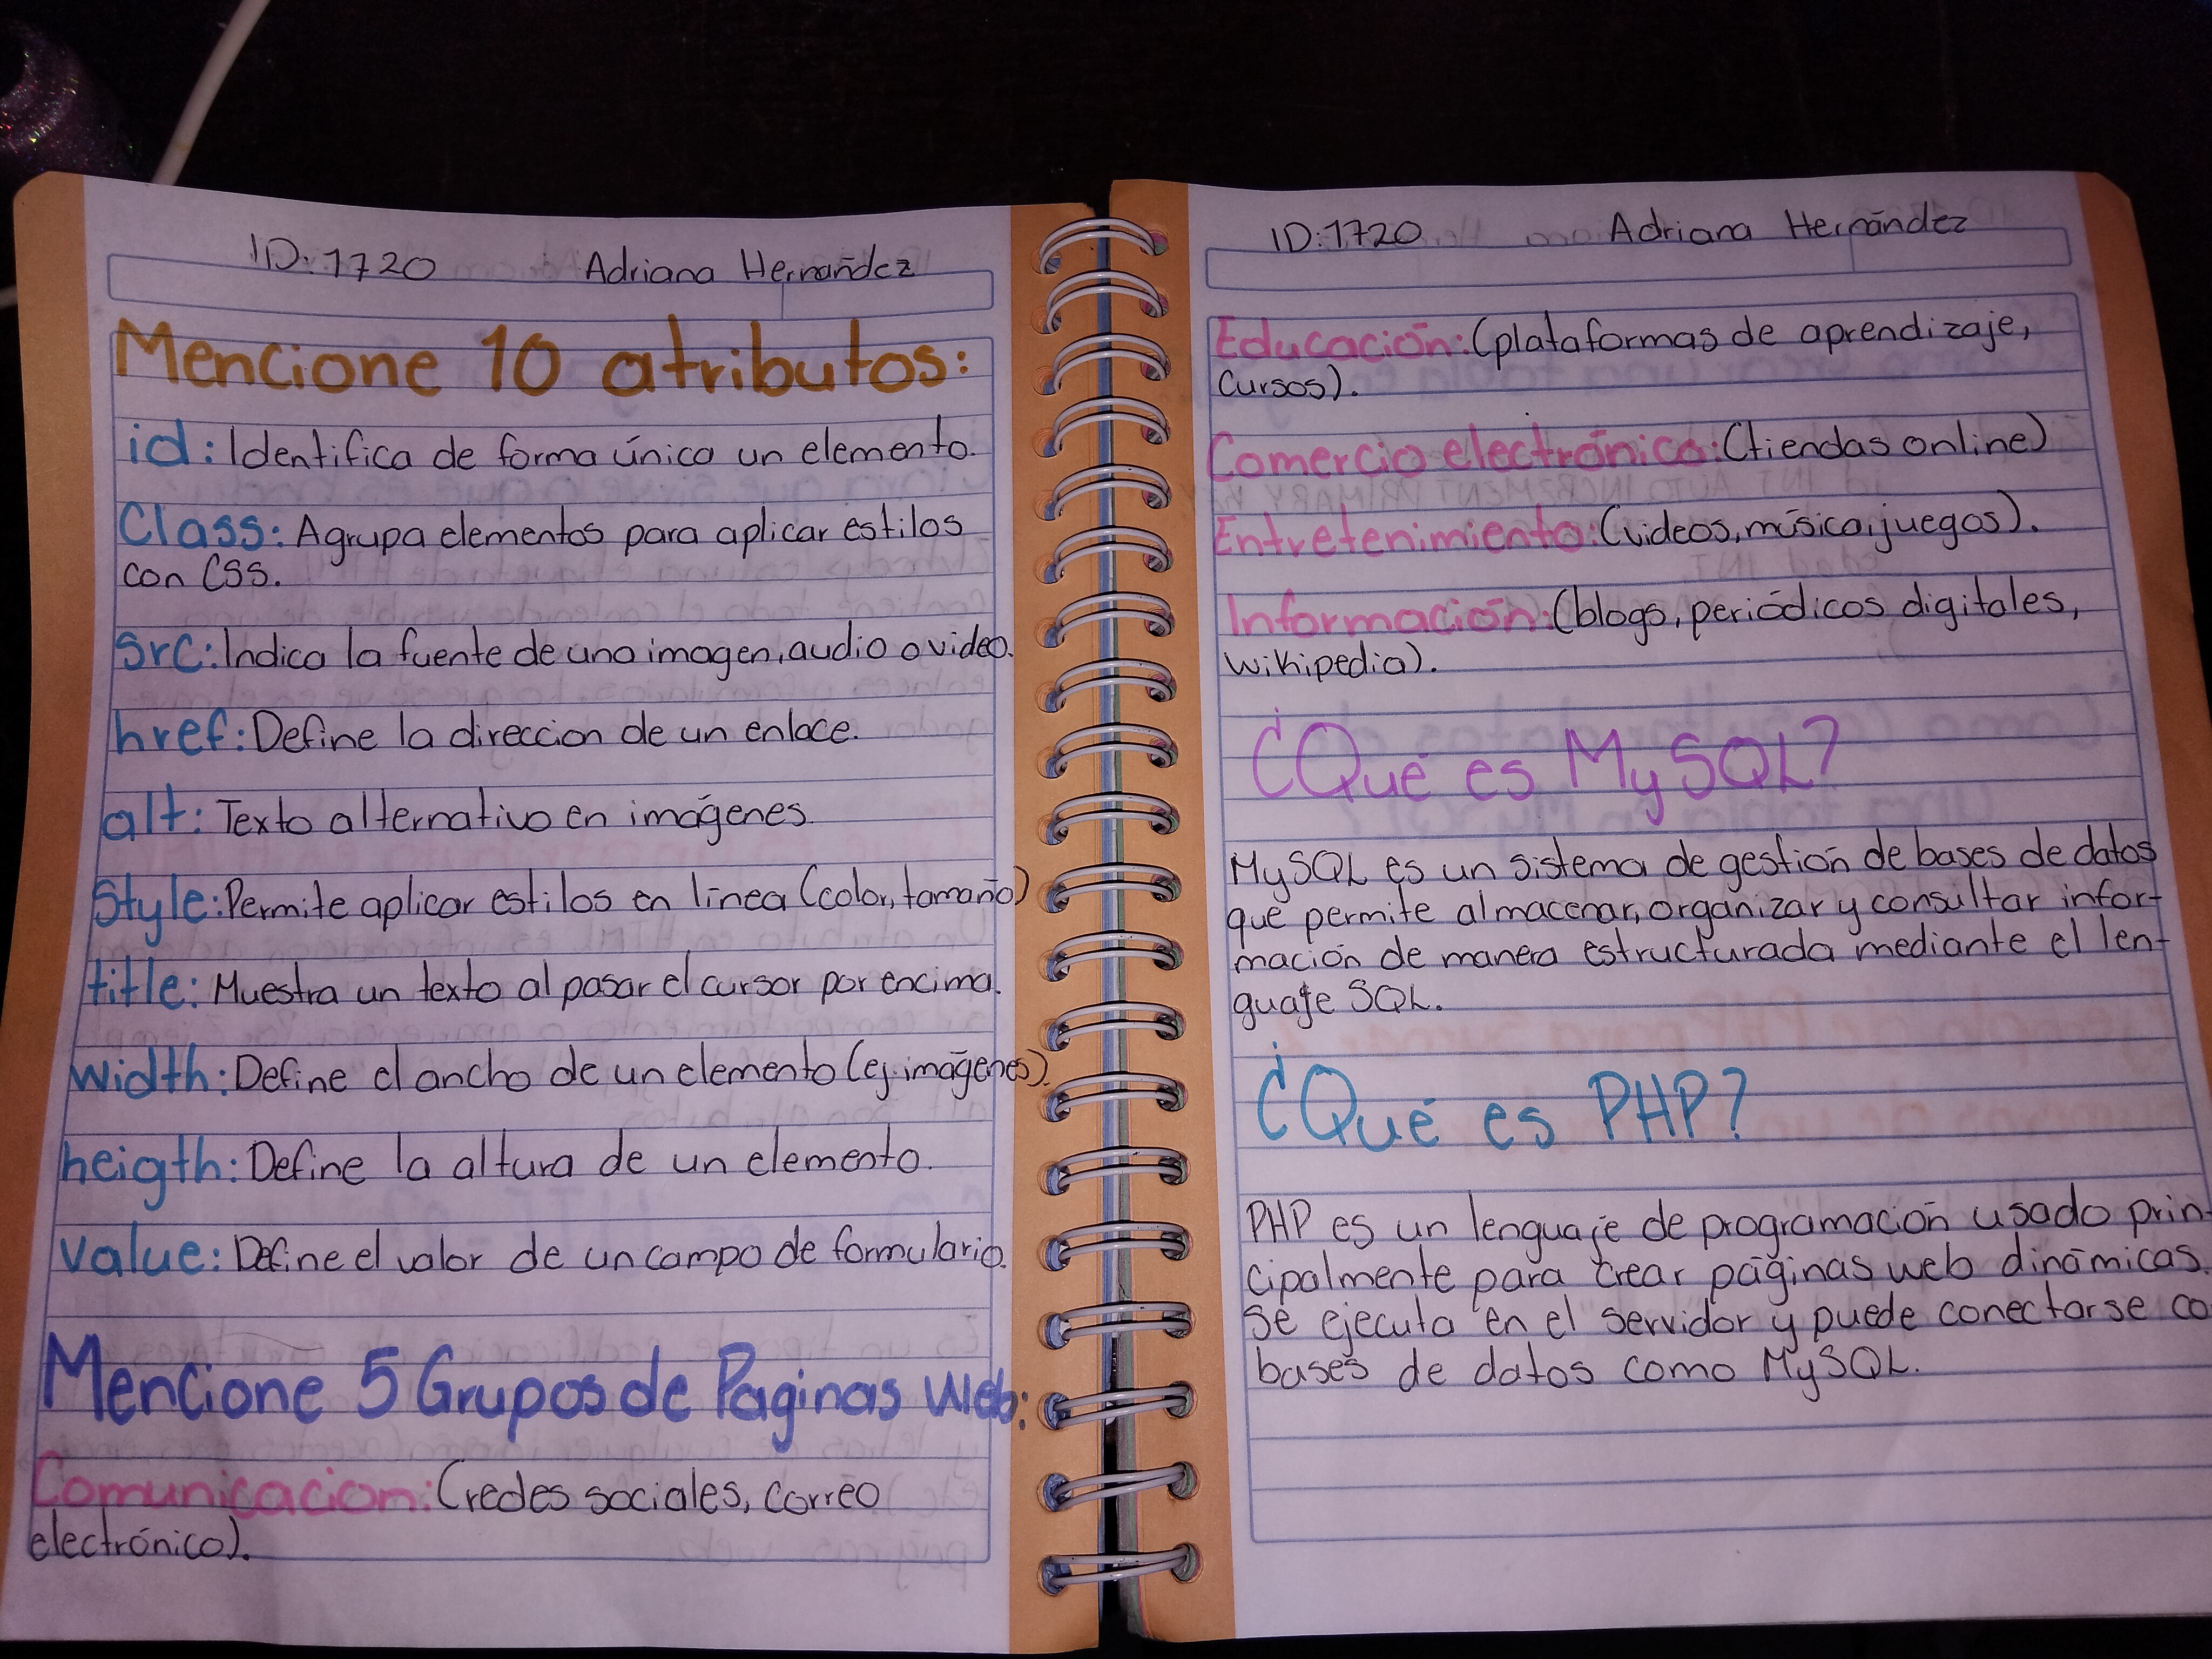 ID: 1720 Adriana Hernández
Mencione 10 atributos:
id: Identifica de forma único un elemento.
Class: Agrupa elementos para aplicar estilos
con CSS.
src: Indica la fuente de una imagen, audio o video.
href: Define la direccion de un enlace.
alt: Texto alternativo en imágenes.
Style: Permite aplicar estilos en línea (color, tamaño)
title: Muestra un texto al pasar el cursor por encima.
width: Define el ancho de un elemento (ej. imágenes).
heigth: Define la altura de un elemento.
value: Define el valor de un campo de formulario.
Mencione 5 Grupos de Paginas Web:
Comunicacion: (redes sociales, correo
electrónico).
ID: 1720 Adriana Hernández
Educación: (plataformas de aprendizaje,
cursos).
Comercio electrónico: (tiendas online)
Entretenimiento: (videos, música, juegos).
Información: (blogs, periódicos digitales,
wikipedia).
¿Qué es MySQL?
MySQL es un sistema de gestión de bases de datos
que permite almacenar, organizar y consultar infor-
mación de manera estructurada mediante el len-
guaje SQL.
¿Qué es PHP?
PHP es un lenguaje de programación usado prin-
cipalmente para crear páginas web dinámicas.
Se ejecuta en el servidor y puede conectarse co
bases de datos como MySQL.